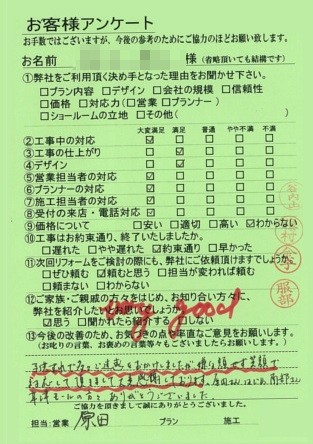 お客様アンケート
お手数ではございますが、今後の参考のためにご協力のほどお願い致します。
お名前 様(省略頂いても結構です)
①弊社をご利用頂く決め手となった理由をお聞かせ下さい。
□プラン内容 □デザイン □会社の規模 □信頼性
□価格 □対応力(□営業 □プランナー)
□ショールームの立地 □その他( )
大変満足 満足 普通 やや不満 不満
②工事中の対応 ☑ □ □ □ □
③工事の仕上がり □ ☑ □ □ □
④デザイン □ ☑ □ □ □
⑤営業担当者の対応 ☑ □ □ □ □
⑥プランナーの対応 ☑ □ □ □ □
⑦施工担当者の対応 ☑ □ □ □ □
⑧受付の来店・電話対応 ☑ □ □ □ □
⑨価格について □安い □適切 □高い ☑わからない
⑩工事はお約束通り、終了いたしましたか。
□遅れた □やや遅れた ☑約束通り □早かった
⑪次回リフォームをご検討の際にも、弊社にご依頼頂けますでしょうか。
□ぜひ頼む ☑頼むと思う □担当が変われば頼む
□頼まない □わからない
⑫ご家族・ご親戚の方々をはじめ、お知り合い方々に、
弊社を紹介したいとお思いでしょうか。
☑思う □聞かれたら紹介する □しない
very good
⑬今後の改善のため、お気づきの点や率直なご意見をお願いします。
(お叱りの言葉、お褒めの言葉等々もいただけましたら、お願いします。)
ありがとうございました。
ご協力を頂きまして誠にありがとうございました。
担当:営業 原田 プラン 施工
服部